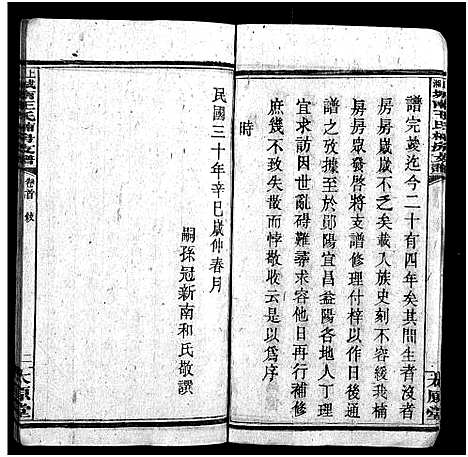 譜完竣迄今二十有四年矣其間生者沒者
房房歲歲不乏矣載入族史刻不容緩我楠
房房眾發啓將支譜修理付梓以作日後通
譜之攷據至於鄖陽宜昌益陽各地人丁理
宜求訪因世亂碍難尋求容他日再行續修
庶幾不致失散而孝敬收云是以爲序
時
民國三十年辛巳歲仲春月
嗣孫冠新南和氏敬撰
卷首
二
太原堂
太原堂